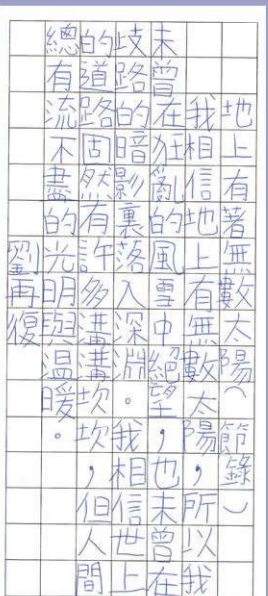 地上有著無數太陽（節錄）
我相信地上有無數太陽，所以我
未曾在狂亂的風雪中絕望，也未曾在
歧路的暗影裏落入深淵。我相信世上
的道路固然有許多溝溝坎坎，但人間
總有流不盡的光明與溫暖。
劉再復